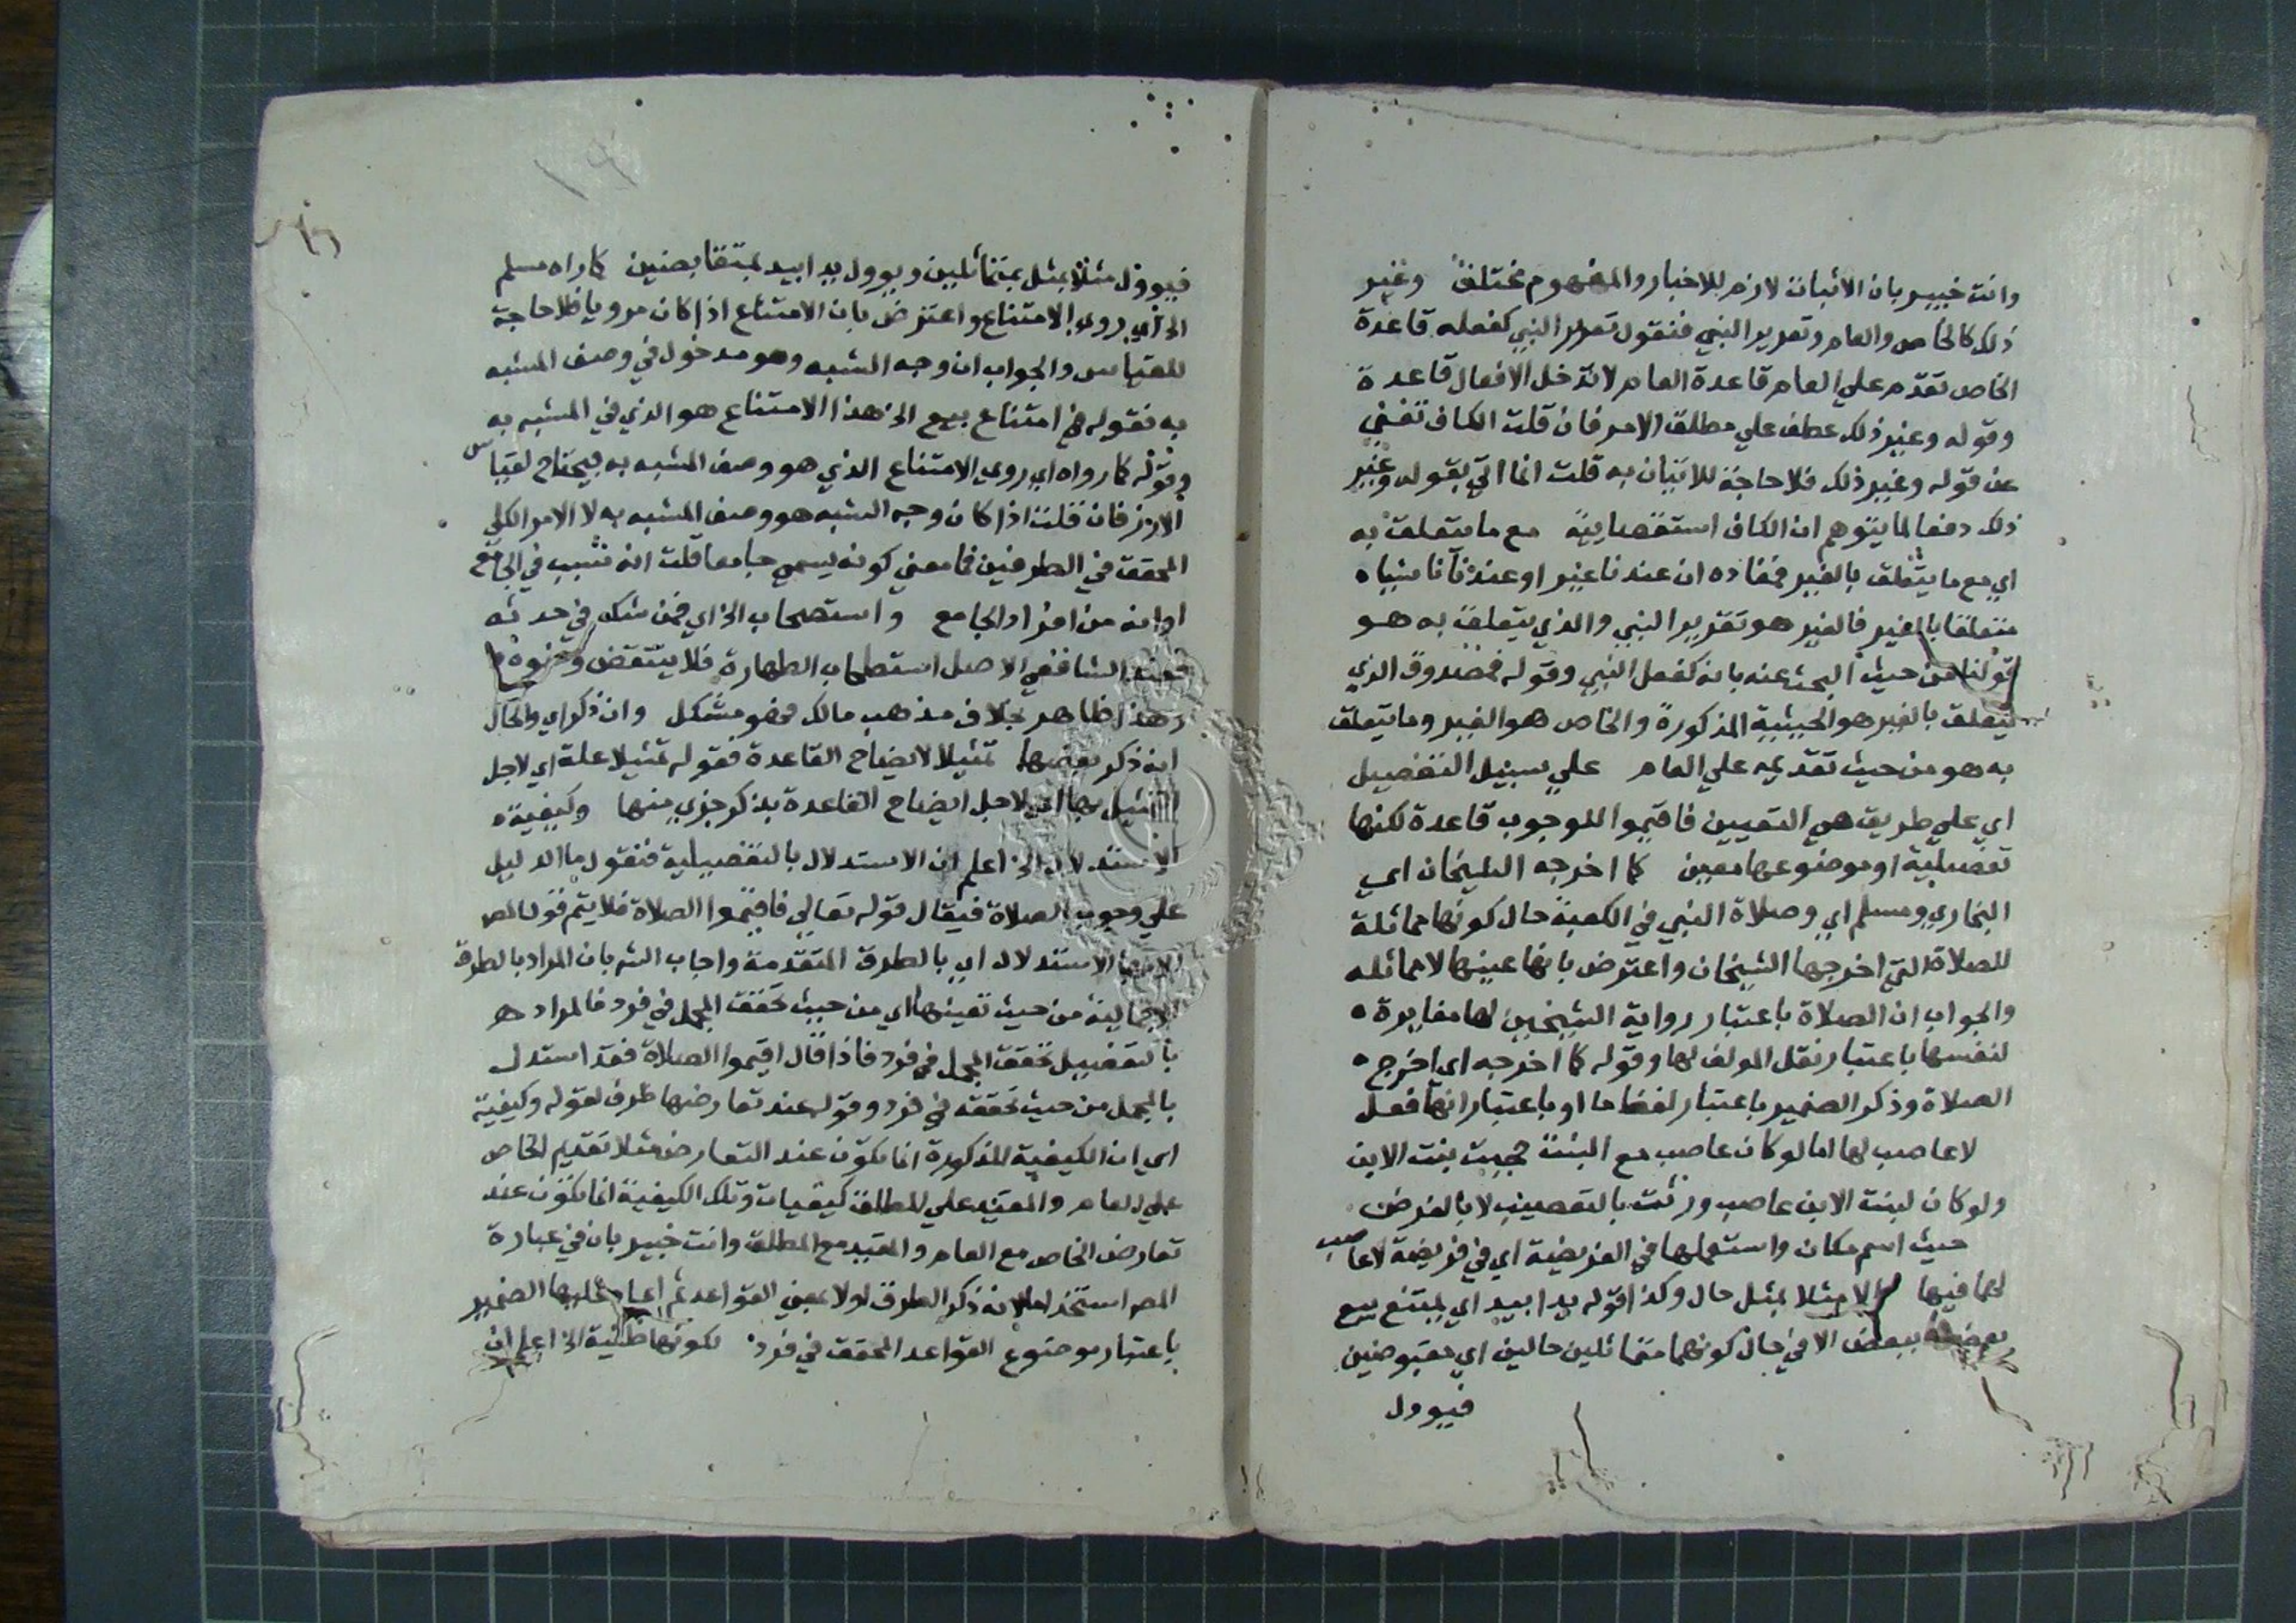 وانت خبير بان الاثبات لازم للاخبار والمفهوم مختلف وغير
ذلك كالخاص والعام وتقرير النبي فنقول تقرير النبي كفعله قاعدة
الخاص تقدم على العام قاعدة العام لا تدخل الافعال قاعدة
وقوله وغير ذلك عطف علي مطلق الامر فان قلت الكاف تغني
عن قوله وغير ذلك فلا حاجة للاتيان به قلت انما اتي بقوله وغير
ذلك دفعا لما يتوهم ان الكاف استقصايية مع ما يتعلق به
اي مع ما يتعلق بالغير فمفاده ان عندنا غير او عندنا شيا
متعلقا بالغير فالغير هو تقرير النبي والذي يتعلق به هو
قولنا من حيث البحث عنه بانه كفعل النبي وقوله فمصدوق الذي
يتعلق بالغير هو الحيثية المذكورة والخاص هو الغير وما يتعلق
به هو من حيث تقديمه علي العام علي سبيل التفصيل
اي علي طريق هي التعيين فاقيموا للوجوب قاعدة لكنها
تفصيلية او موضوعها معين كما اخرجه الشيخان اي
البخاري ومسلم اي وصلاة النبي في الكعبة حال كونها مماثلة
للصلاة التي اخرجها الشيخان واعترض بانها عينها لا مماثله
والجواب ان الصلاة باعتبار رواية الشيخين لها مغايرة
لنفسها باعتبار نقل المولف لها وقوله كما اخرجه اي اخرج
الصلاة وذكر الضمير باعتبار لفظ ما او باعتبار انها فعل
لا عاصب لها اما لو كان عاصب مع البنت حجبت بنت الابن
ولو كان لبنت الابن عاصب ورثت بالتعصيب لا بالفرض
حيث اسم مكان واستعملها في الفريضة اي في فريضة لا عاصب
لهما فيها الا مثلا بمثل حال وكذا قوله يدا بيد اي يمتنع بيع
بعضه ببعض الا في حال كونهما متماثلين حالين اي مقبوضين
فيوول
١٩
فيوول مثلا بمثل بمتماثلين ويوول يدا بيد بمتقابضين كما رواه مسلم
الخ اي روي الامتناع واعترض بان الامتناع اذا كان مرويا فلا حاجة
للقياس والجواب ان وجه الشبه وهو مدخول في وصف المشبه
به فقوله في امتناع بيع الخ هذا الامتناع هو الذي في المشبه به
وقوله كما رواه اي روي الامتناع الذي هو وصف المشبه به فيحتاج لقياس
الارز فان قلت اذا كان وجه الشبه هو وصف المشبه به لا الامر الكلي
المحقق في الطرفين فما معني كونه يسمي جامعا قلت انه تسبب في الجامع
او انه من افراد الجامع واستصحاب الخ اي فمن شك في حدثه
فعند الشافعي الاصل استصحاب الطهارة فلا ينتقض وضوه
وهذا ظاهر بخلاف مذهب مالك فهو مشكل وان ذكر اي والحال
انه ذكر بعضها تمثيلا لايضاح القاعدة فقوله تمثيلا علة اي لاجل
التمثيل بها اي لاجل ايضاح القاعدة بذكر جزي منها وكيفية
الاستدلال الخ اعلم ان الاستدلال بالتفصيلية فنقول ما الدليل
علي وجوب الصلاة فيقال قوله تعالي فاقيموا الصلاة فلا يتم قول المص
الاستدلال اي بالطرق المتقدمة واجاب الش بان المراد بالطرق
الاجمالية من حيث تعينها اي من حيث تحقق المجمل في فرد فالمراد
بالتفصيل تحقق المجمل في فرد فاذا قال اقيموا الصلاة فقد استدل
بالمجمل من حيث تحققه في فرد وقوله عند تعارضها ظرف لقوله وكيفية
اي ان الكيفية المذكورة انما تكون عند التعارض مثلا تقديم الخاص
علي العام والمقيد علي المطلق كيفيات وتلك الكيفية انما تكون عند
تعارض الخاص مع العام والمقيد مع المطلق وانت خبير بان في عبارة
المص استخداما لانه ذكر الطرق اولا بمعني القواعد ثم اعاد عليها الضمير
باعتبار موضوع القواعد المحقق في فرد لكونها ظنية الخ اعلم ان